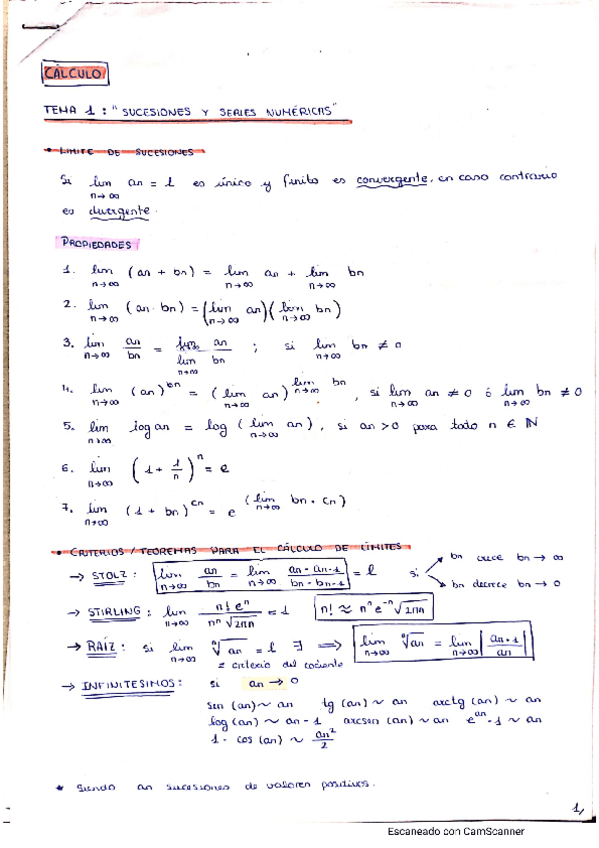 CÁLCULO
TEMA 1 : "SUCESIONES Y SERIES NUMÉRICAS"
• LÍMITE DE SUCESIONES
Si lim n→∞ an = l es único y finito es convergente, en caso contrario
es divergente.
PROPIEDADES
1. lim n→∞ (an + bn) = lim n→∞ an + lim n→∞ bn
2. lim n→∞ (an · bn) = (lim n→∞ an)(lim n→∞ bn)
3. lim n→∞ an/bn = lim an / lim n→∞ bn ; si lim n→∞ bn ≠ 0
4. lim n→∞ (an)^bn = (lim n→∞ an)^(lim n→∞ bn), si lim n→∞ an ≠ 0 ó lim n→∞ bn ≠ 0
5. lim n→∞ log an = log (lim n→∞ an), si an > 0 para todo n ∈ ℕ
6. lim n→∞ (1 + 1/n)^n = e
7. lim n→∞ (1 + bn)^cn = e^(lim n→∞ bn · cn)
• CRITERIOS / TEOREMAS PARA EL CÁLCULO DE LÍMITES
→ STOLZ : lim n→∞ an/bn = lim n→∞ (an - an-1)/(bn - bn-1) = l si bn crece bn → ∞
bn decrece bn → 0
→ STIRLING : lim n→∞ n! e^n / n^n √2πn = 1 n! ≈ n^n e^-n √2πn
→ RAÍZ : si lim n→∞ ⁿ√an = l ∃ ⟹ lim n→∞ ⁿ√an = lim n→∞ |an-1/an|
= criterio del cociente
→ INFINITESIMOS : si an → 0
sen (an) ~ an tg (an) ~ an arctg (an) ~ an
log (an) ~ an - 1 arcsen (an) ~ an e^an - 1 ~ an
1 - cos (an) ~ an²/2
* Siendo an sucesiones de valores positivos.
1,
Escaneado con CamScanner